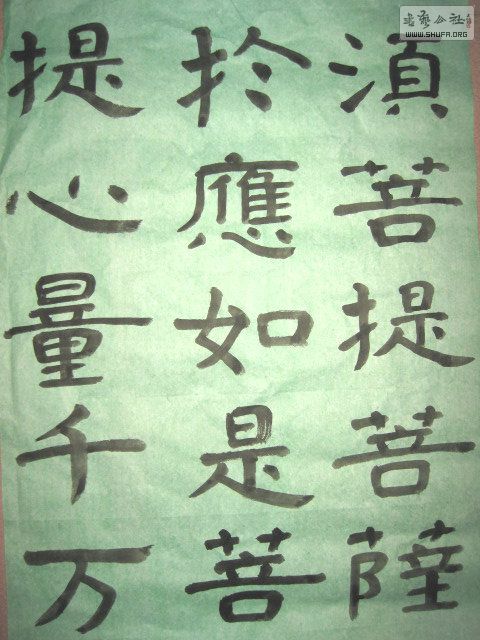 湏菩提菩薩
扵應如是菩
提心量千万
书艺公社
WWW.SHUFA.ORG